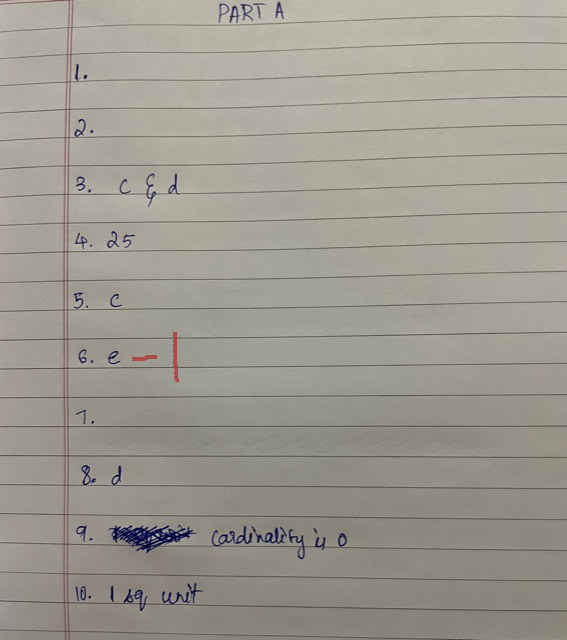 PART A
1.
2.
3. c & d
4. 25
5. c
6. e - |
7.
8. d
9. cardinality is 0
10. 1 sq unit